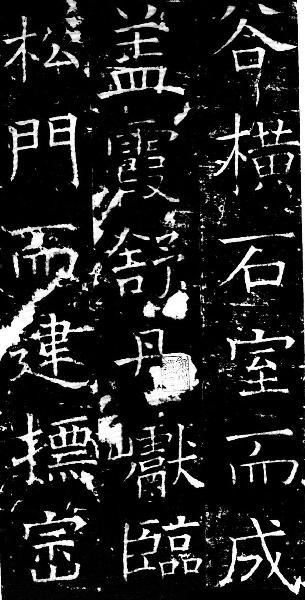 谷橫石室而成
盖霞舒丹巘臨
松門而建摽宻